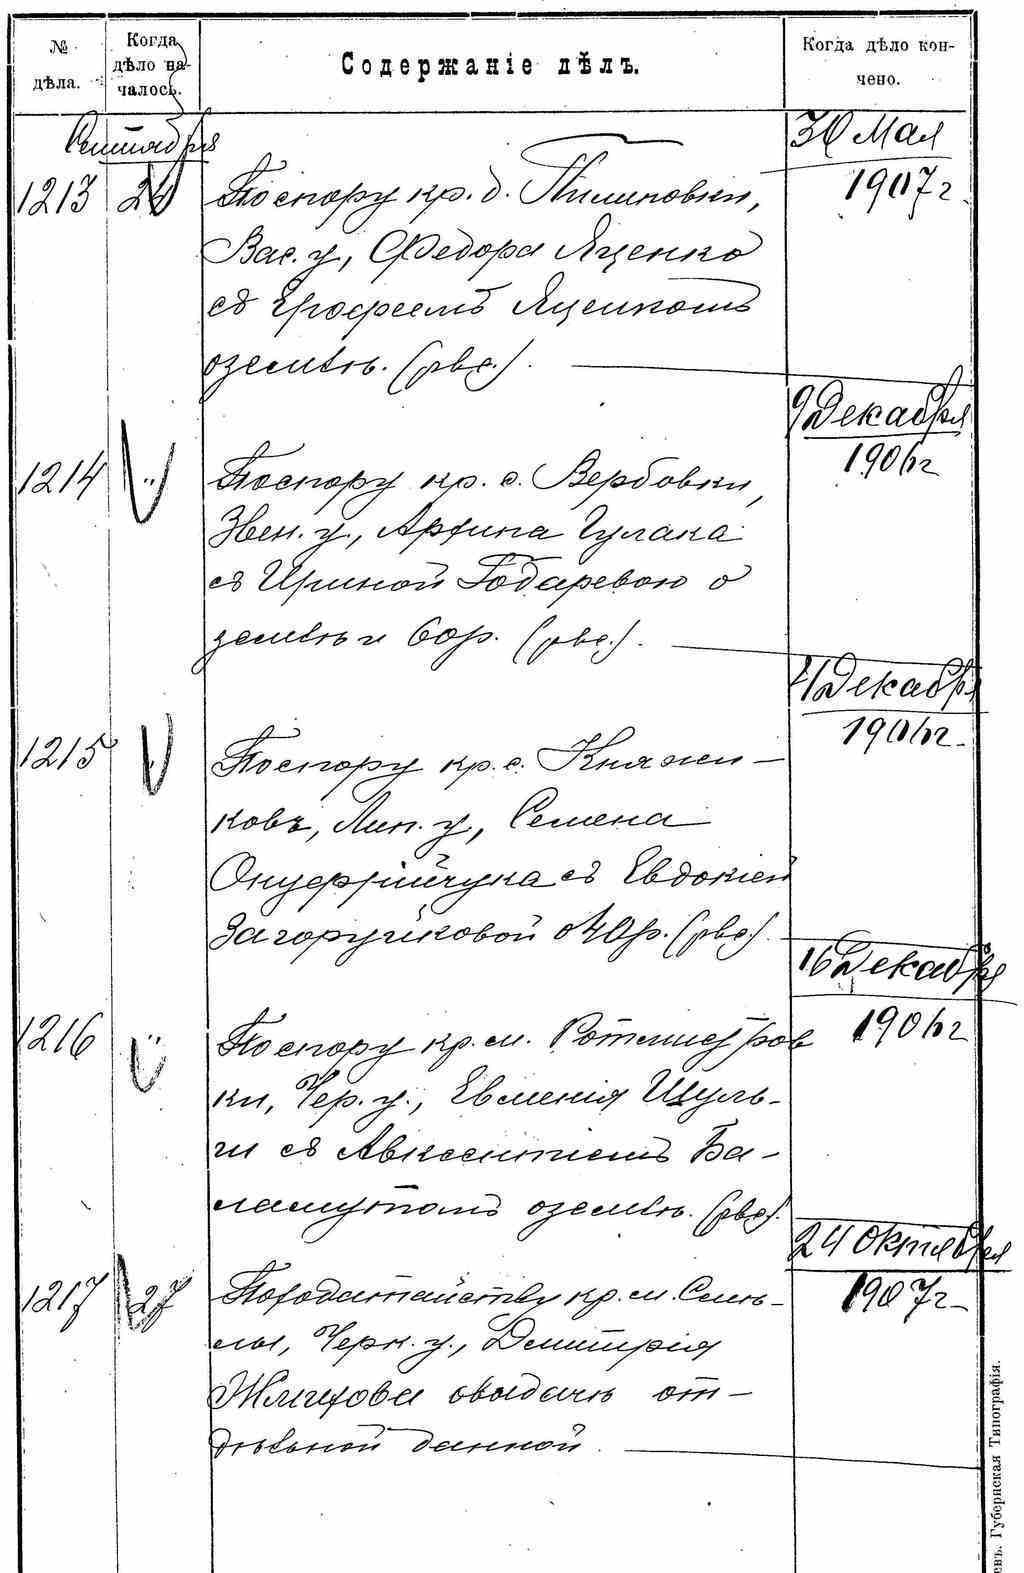 № дѣла.
Когда дѣло на-чалось.
Содержаніе дѣлъ.
Когда дѣло кон-чено.
Сентября
30 Мая
1907 г.
1213
24
По спору кр. д. Пилиповки,
Вас. у., Федора Яценко
съ Ерофеемъ Яценкомъ
о землѣ. (рвс.).
9 Декабря
1906 г
1214
"
По спору кр. с. Вербовки,
Звен. у., Артина Гулака
съ Ириной Бодаревою о
землѣ и 60 р. (рвс.).
21 Декабря
1906 г.
1215
"
По спору кр. с. Княжи-
ковъ, Лип. у., Семена
Онуфрійчука съ Евдокіей
Загоруйковой о 40 р. (рвс.).
16 Декабря
1906 г
1216
"
По спору кр. м. Ротмистров
ки, Чер. у., Евменія Шуль-
ги съ Авксентіемъ Ба-
ламутомъ о землѣ. (рвс).
24 Октября
1907 г.
1217
27
По ходатайству кр. м. Смѣ-
лы, Черк. у., Дмитрія
о выдачѣ от-
дѣльной данной.
Губернская Типографія.